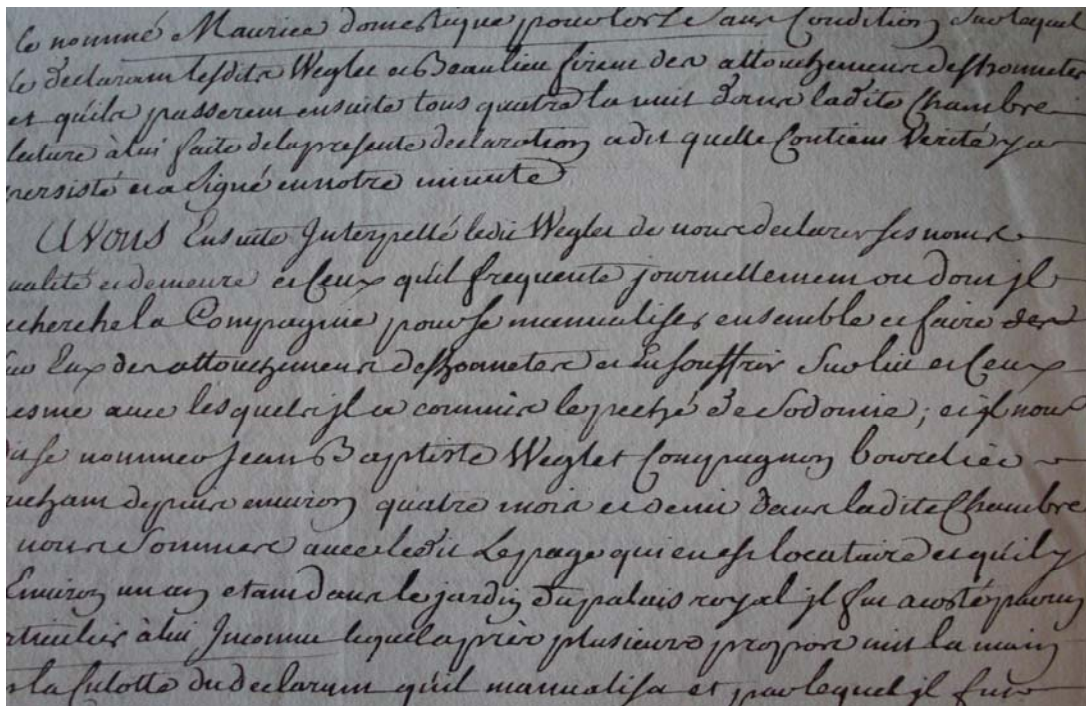 le nommé Maurice domestique pour lors Sans Condition Sur lequel
le declarant lesdits Wegler et Beaulieu firent des attouchemens deshonnetes
et qu'ils passerent ensuite tous quatre la nuit dans ladite Chambre
lecture à lui faite de la presente declaration a dit quelle Contient Verité y a
persisté et a Signé en notre minute
Avons Ensuite Interpellé ledit Wegler de nous declarer ses noms
ualité et demeure et Ceux qu'il frequente journellement ou dont jl
echerche la Compagnie pour se manualiser ensemble et faire des
Eux des attouchemens deshonnetes et En souffrir Sur lui et Ceux
esme avec lesquels jl a commis le peché de Sodomie; et jl nous
dit se nommer Jean Baptiste Wegler Compagnon bourelier
uchant depuis environ quatre mois et demi dans ladite Chambre
nous Sommes avec ledit Lepage qui en est locataire et qu'il y
Environ un an etant dans le jardin du palais royal jl fut acosté par un
rticulier à lui Inconnu lequel après plusieurs propos mit la main
s la Culotte du declarant qu'il manualisa et par lequel jl fut